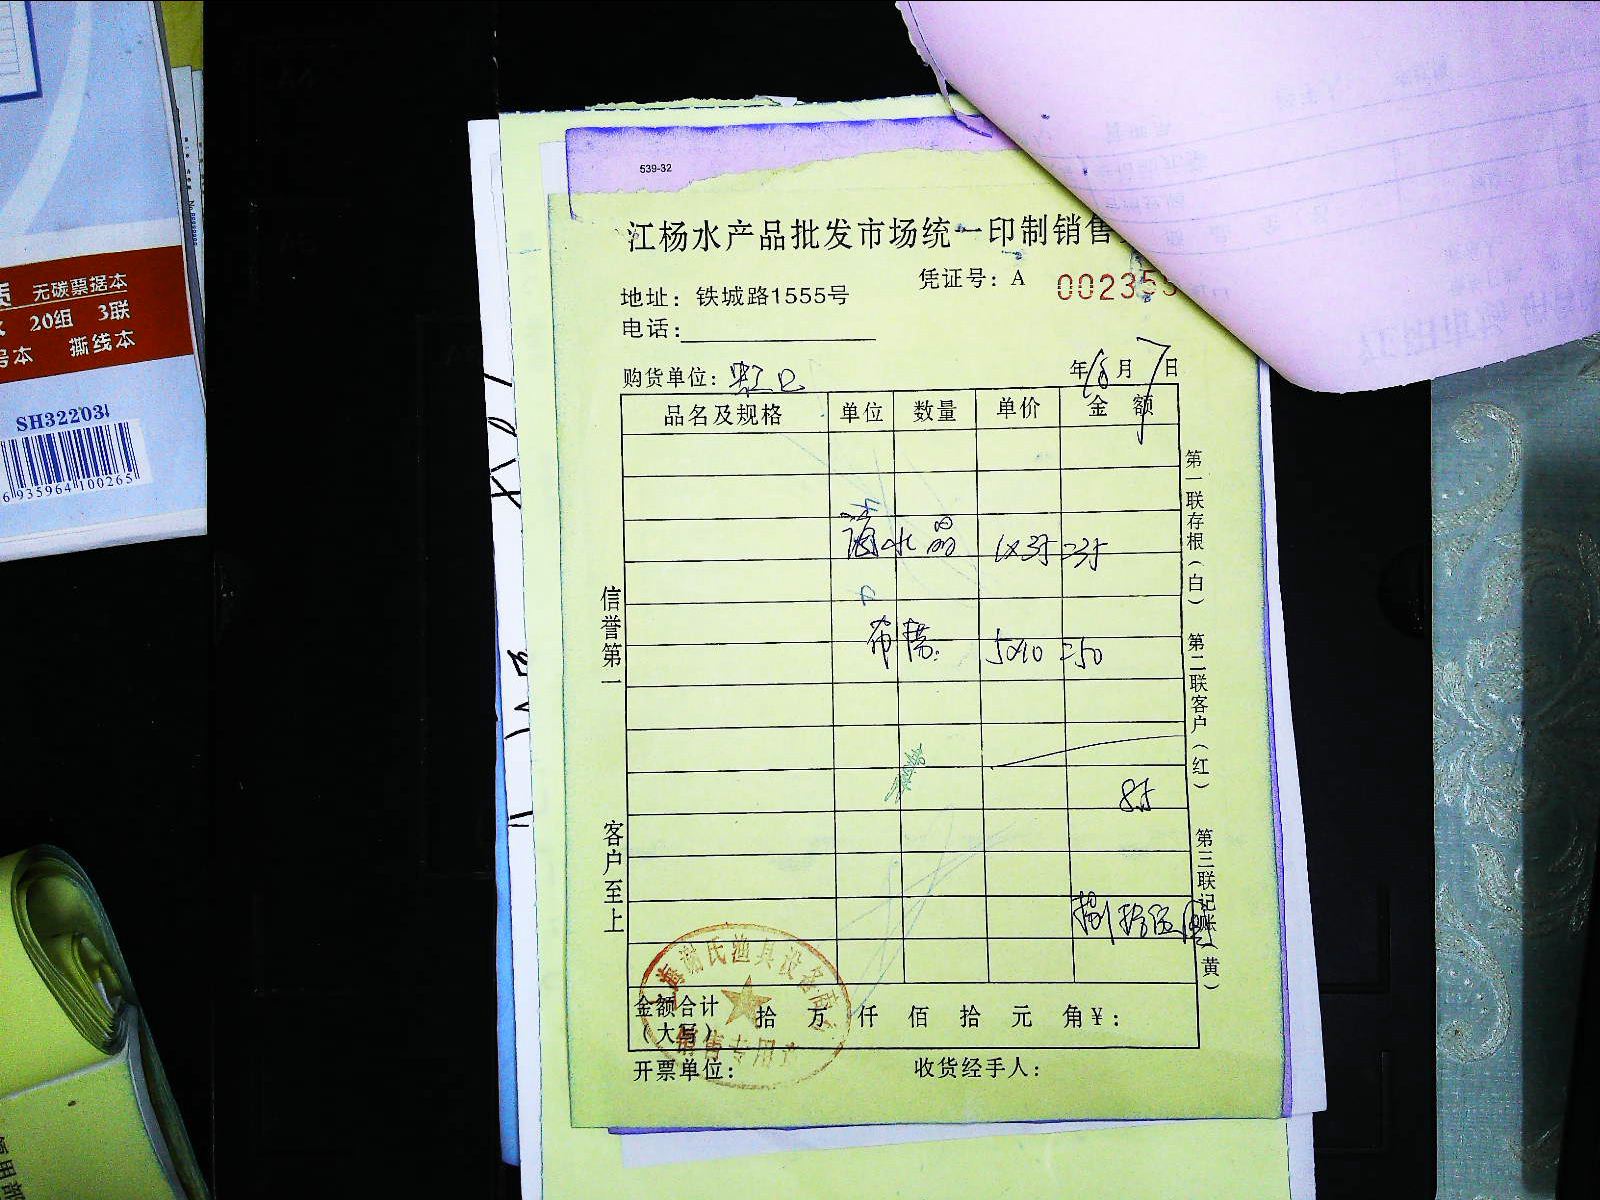 539-32
江杨水产品批发市场统一印制销售
凭证号：A 002355
地址：铁城路1555号
电话：
购货单位：虹口
年 6 月 7 日
品名及规格 单位 数量 单价 金额
水晶 1×35=35
5×10=50
85
捌拾伍
金额合计（大写） 拾 万 仟 佰 拾 元 角 ¥：
开票单位： 收货经手人：
信誉第一
客户至上
第一联存根（白） 第二联客户（红） 第三联记账（黄）
上海谢氏渔具设备
销售专用
无碳票据本
20组 3联
号本 撕线本
SH32203
6 935964 100265